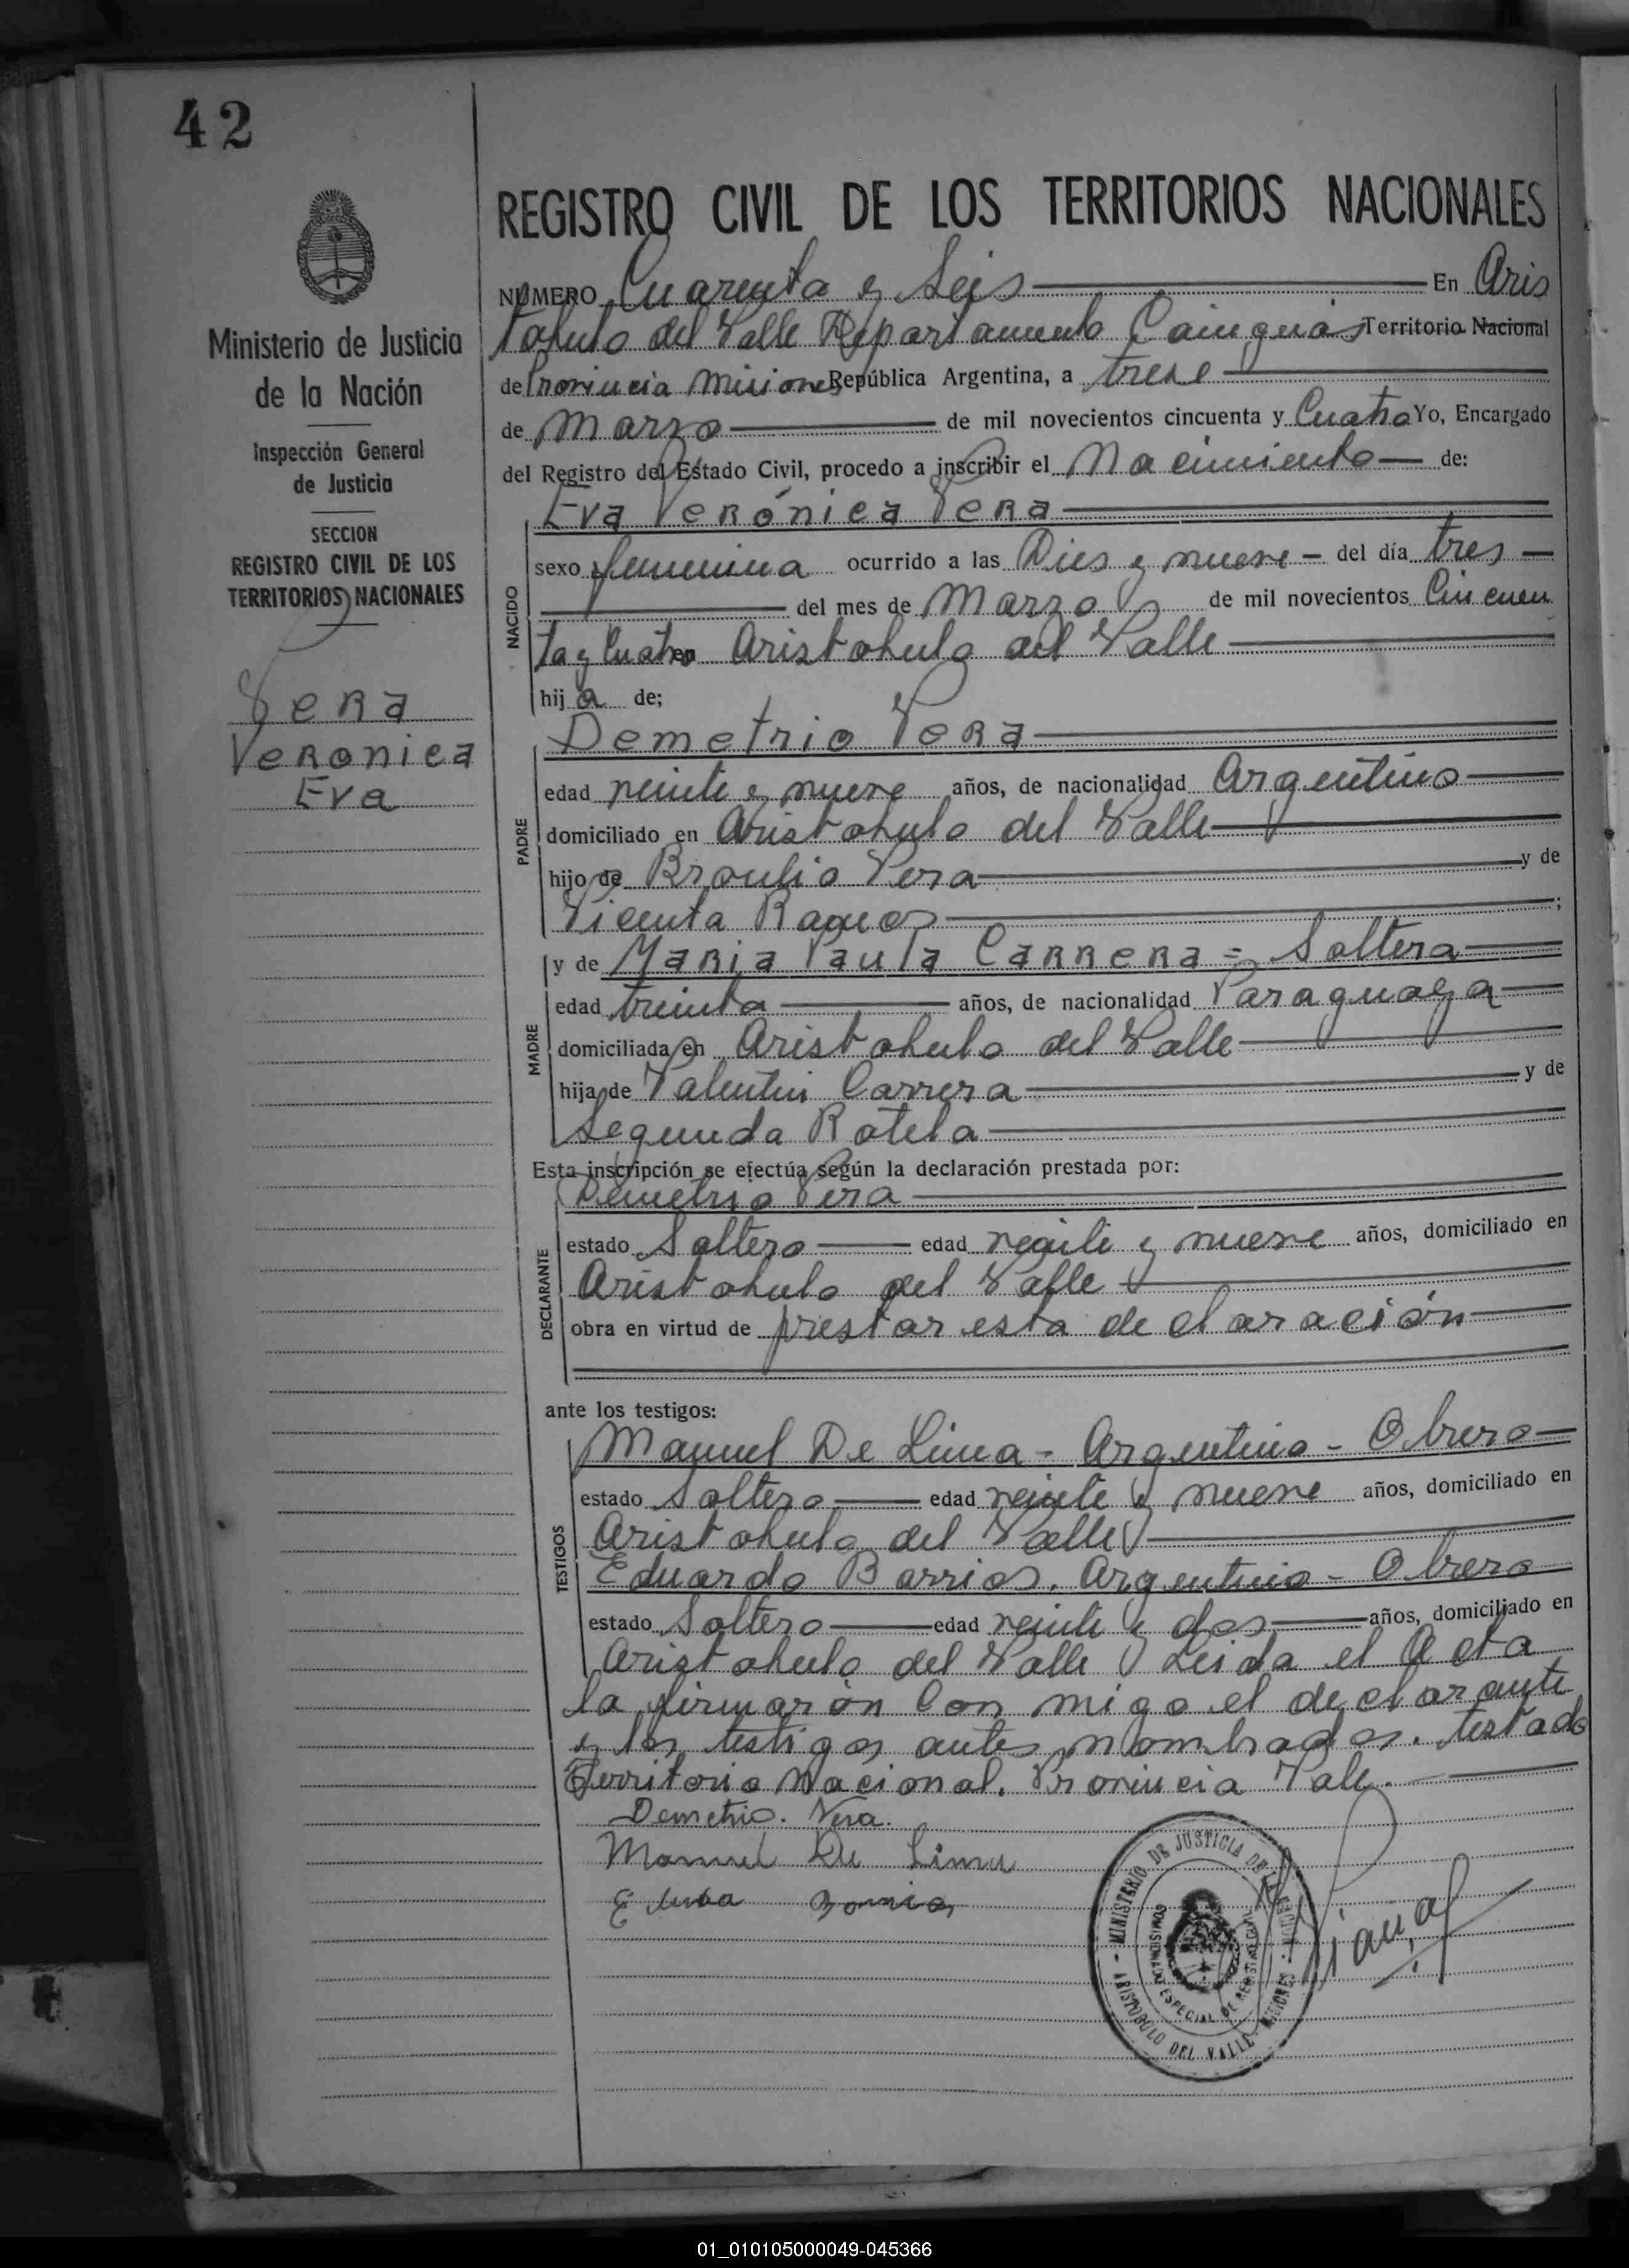 42
REGISTRO CIVIL DE LOS TERRITORIOS NACIONALES
Ministerio de Justicia
de la Nación
Inspección General
de Justicia
SECCION
REGISTRO CIVIL DE LOS
TERRITORIOS NACIONALES
Vera
Veronica
Eva
NÚMERO Cuarenta y Seis En Aris
tobulo del Valle Departamento Cainguás Territorio Nacional
de Provincia Misiones República Argentina, a trese
de Marzo de mil novecientos cincuenta y Cuatro Yo, Encargado
del Registro del Estado Civil, procedo a inscribir el Nacimiento de:
Eva Verónica Vera
NACIDO
sexo femenina ocurrido a las Dies y nueve - del día tres
del mes de Marzo de mil novecientos Cincuen
ta y Cuatro en Aristobulo del Valle
hija de;
Demetrio Vera
PADRE
edad veinte y nueve años, de nacionalidad Argentino
domiciliado en Aristobulo del Valle
hijo de Braulio Vera y de
Vicenta Ramos ;
y de Maria Paula Carrera = Soltera
MADRE
edad treinta años, de nacionalidad Paraguaya
domiciliada en Aristobulo del Valle
hija de Valentin Carrera y de
Segunda Rotela
Esta inscripción se efectúa según la declaración prestada por:
Demetrio Vera
DECLARANTE
estado Soltero edad veinte y nueve años, domiciliado en
Aristobulo del Valle
obra en virtud de prestar esta declaración
ante los testigos:
Manuel De Lima - Argentino - Obrero
TESTIGOS
estado Soltero edad veinte y nueve años, domiciliado en
Aristobulo del Valle
Eduardo Barrios. Argentino - Obrero
estado Soltero edad veinte y dos años, domiciliado en
Aristobulo del Valle Leida el Acta
la firmarón Con migo el declarante
y los testigos antes nombrados. testado
Territorio Nacional. Provincia Vale.
Demetrio. Vera.
Manuel De Lima
MINISTERIO DE JUSTICIA DE LA NACION
ARISTOBULO DEL VALLE - MISIONES
01_010105000049-045366